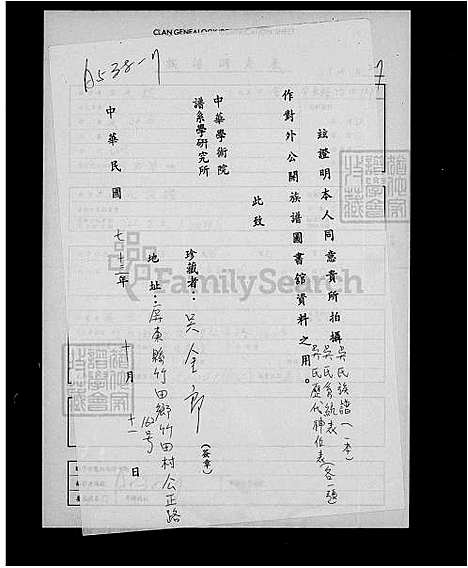 CLAN GENEALOGY
A538-7
7
茲證明本人同意貴所拍攝
吳氏族譜(一本)
吳氏系統表
吳氏歷代神位表(各一張
作對外公開族譜圖書館資料之用。
此致
中華學術院
譜系學研究所
珍藏者:吳全郎(簽章)
地址:屏東縣竹田鄉竹田村公正路
162号
中華民國七十三年十月十一日
FamilySearch